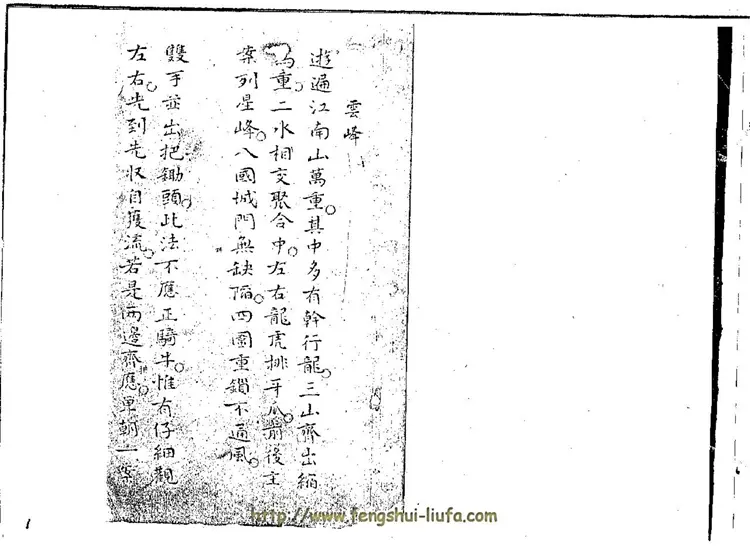 雲峰
遊遍江南山萬重。其中多有幹行龍。三山齊出縮
為重。二水相交聚合中。左右龍虎排牙爪。前後主
案列星峰。八國城門無缺陷。四圍重鎖不通風。
雙手並出把鋤頭。此法不應正騎牛。惟有仔細觀
左右。先到先收自獲流。若是兩邊齊應單朝一案
http://www.fengshui-liufa.com
1